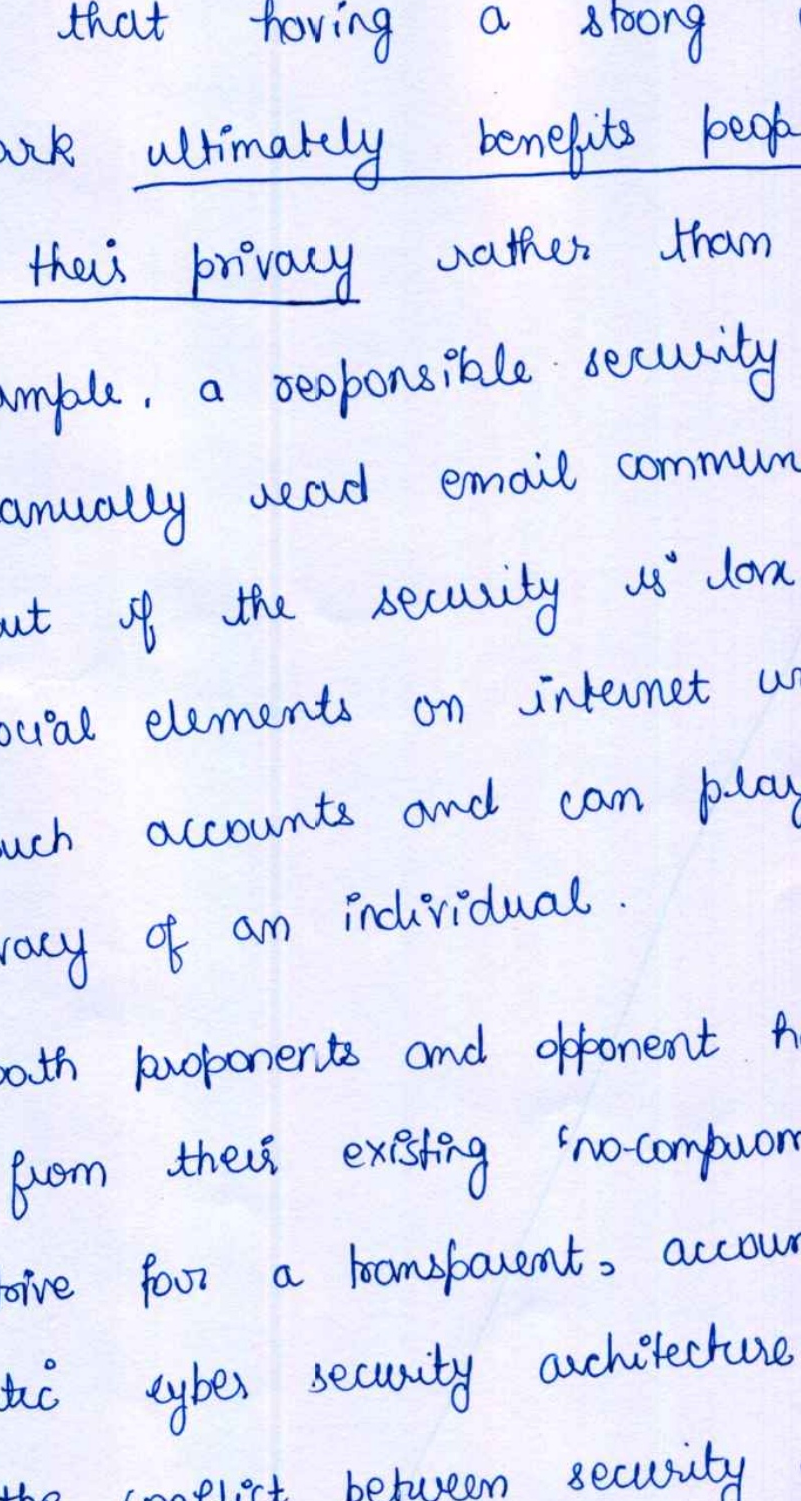 that having a strong
ark ultimately benefits peop
their privacy rather than
ample, a responsible security
anually read email commun
ut if the security is lax
ocial elements on internet
uch accounts and can play
vacy of an individual.
both proponents and opponent h
from their existing 'no-comprom
rive for a transparent, accoun
tic cyber security architecture
the conflict between security